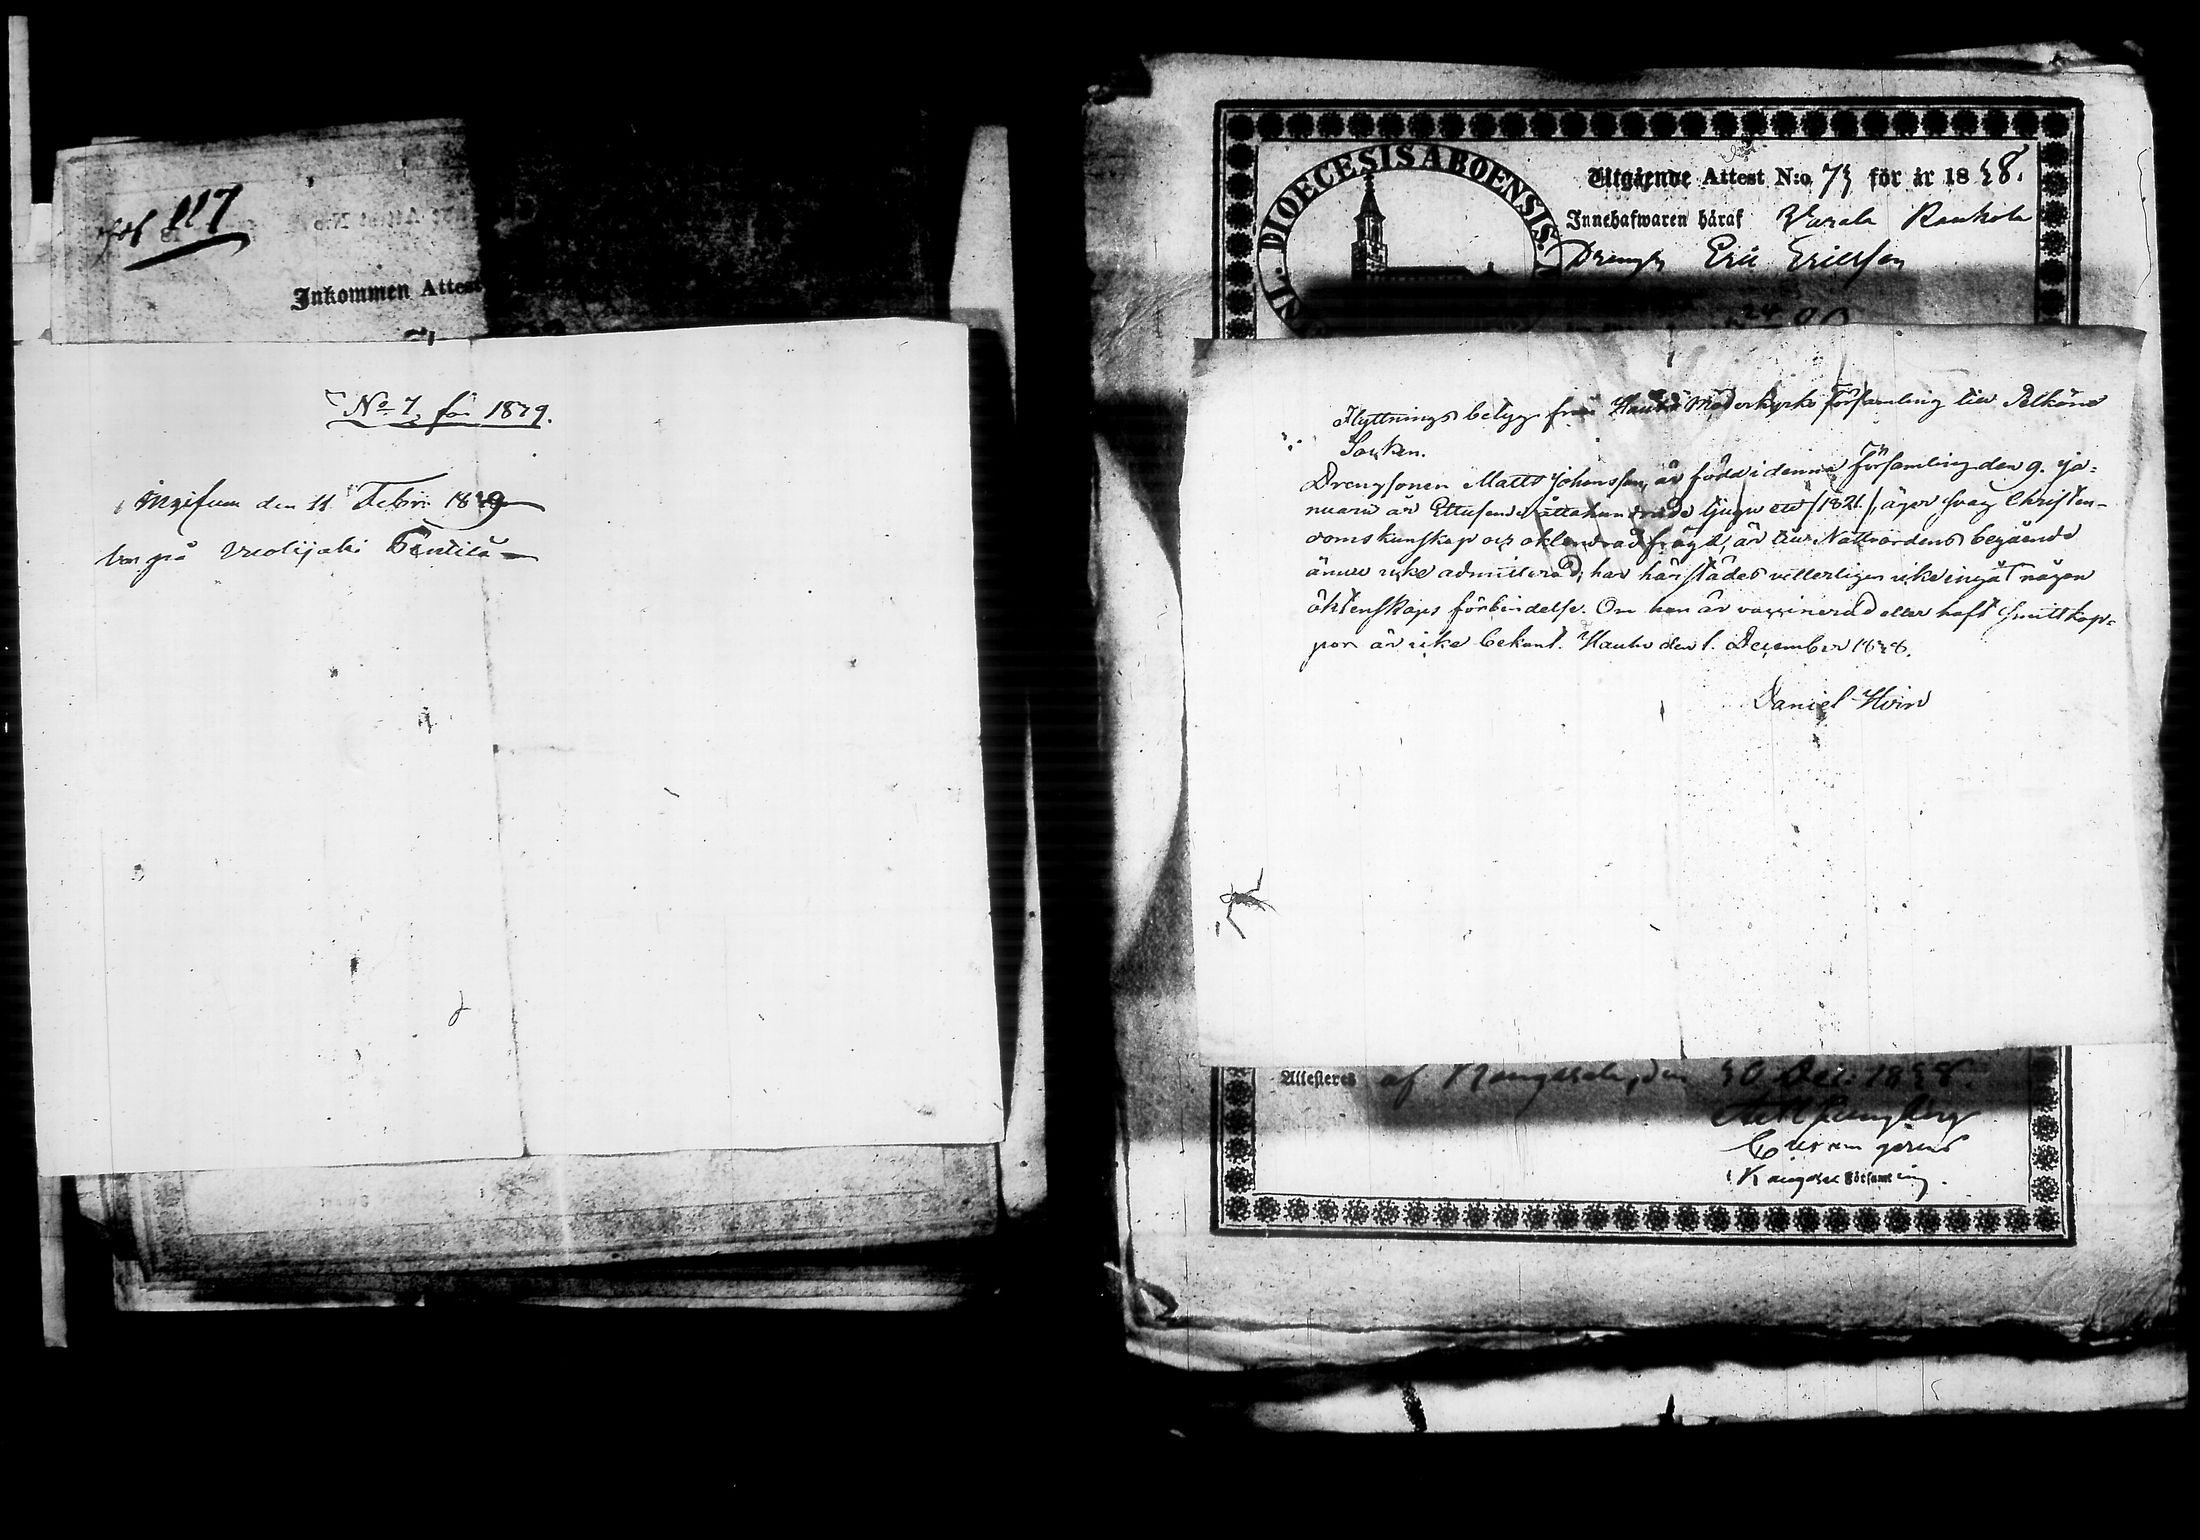 117
Inkommen Attest
No 7, för 1839.
Ingifven den 11 Febr: 1839
bor på
DIOECESIS ABOENSIS.
Utgående Attest N:o 73 för år 1838.
Innehafwaren häraf
Drengen Eric Ericsson
Flyttnings betyg från Hauho Moderkyrko Församling till Pelkäne
Socken.
Drengsonen Matts Johansson, är född i denna Församling den 9. Ja-
nuarii år Ettusende åttahundrade tjugu ett /1821/, äger svag Christen-
doms kunskap och oklandrad frägd, är till Nattvardens begående
ännu icke admitterad, har härstädes vetterligen icke ingått någon
äktenskaps förbindelse. Om han är vaccinerad eller haft Smittkop-
por är icke bekant. Hauho den 1. December 1838.
Daniel
Attesteres af Kangasala, den 30 Dec: 1838.
Ljungberg
Kangasala Församling.